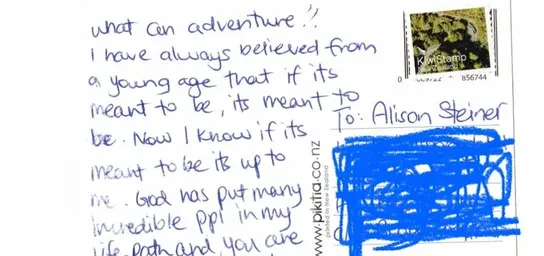 what can adventure!!
I have always believed from
a young age that if its
meant to be, its meant to
be. Now I know if its
meant to be its up to
me. God has put many
incredible ppl in my
life path and you are
KiwiStamp
0
856744
To: Alison Steiner
www.pikitia.co.nz
printed in New Zealand